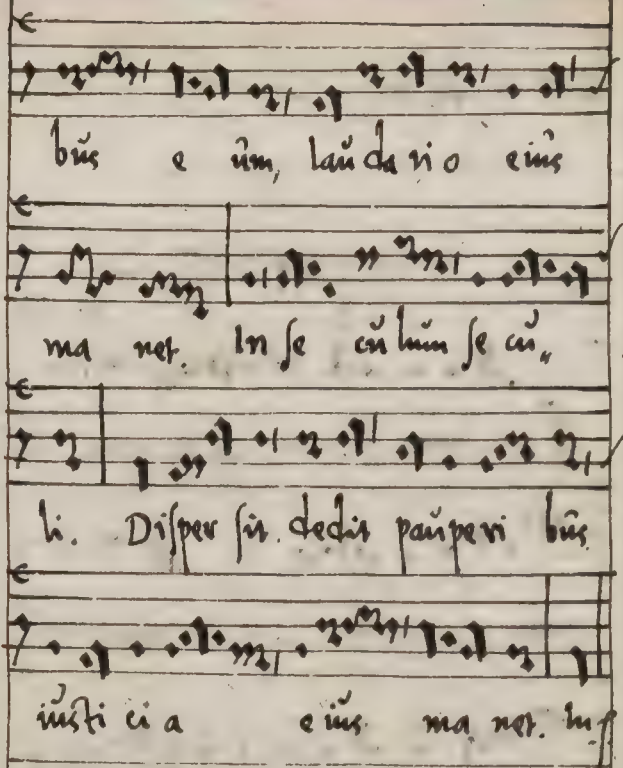 bus e um, laudatio eius
ma net. In se culum se cu„
li. Disper sit. dedit pauperi bus
iusti ci a eius ma net. In s